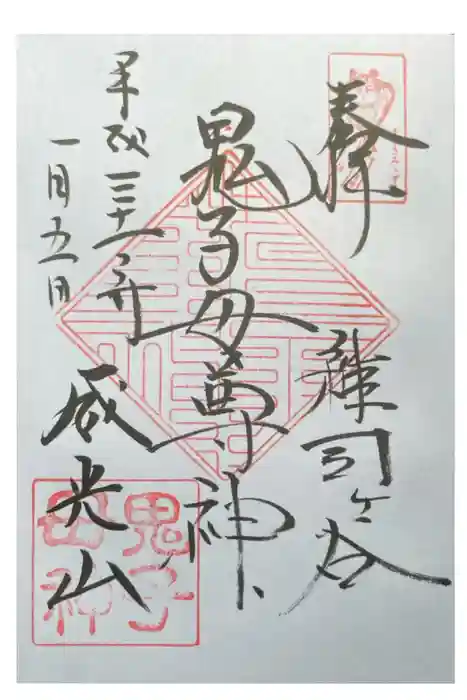 奉
雑司ヶ谷
鬼子母尊神
平成三十一年
一月五日
威光山
鬼子
母神